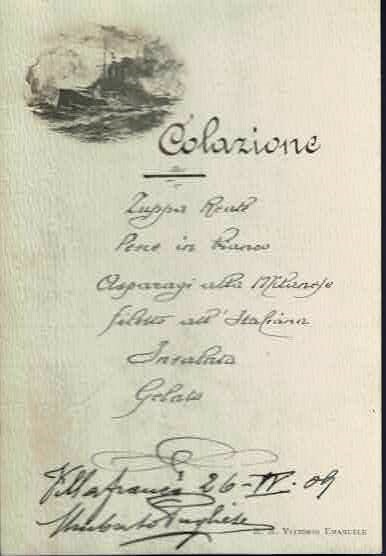 Colazione
Zuppa Reale
Pesce in bianco
Asparagi alla Milanese
Filetto all'Italiana
Insalata
Gelato
Villafranca 26-IV.09
Umberto Pugliese
R. N. Vittorio Emanuele